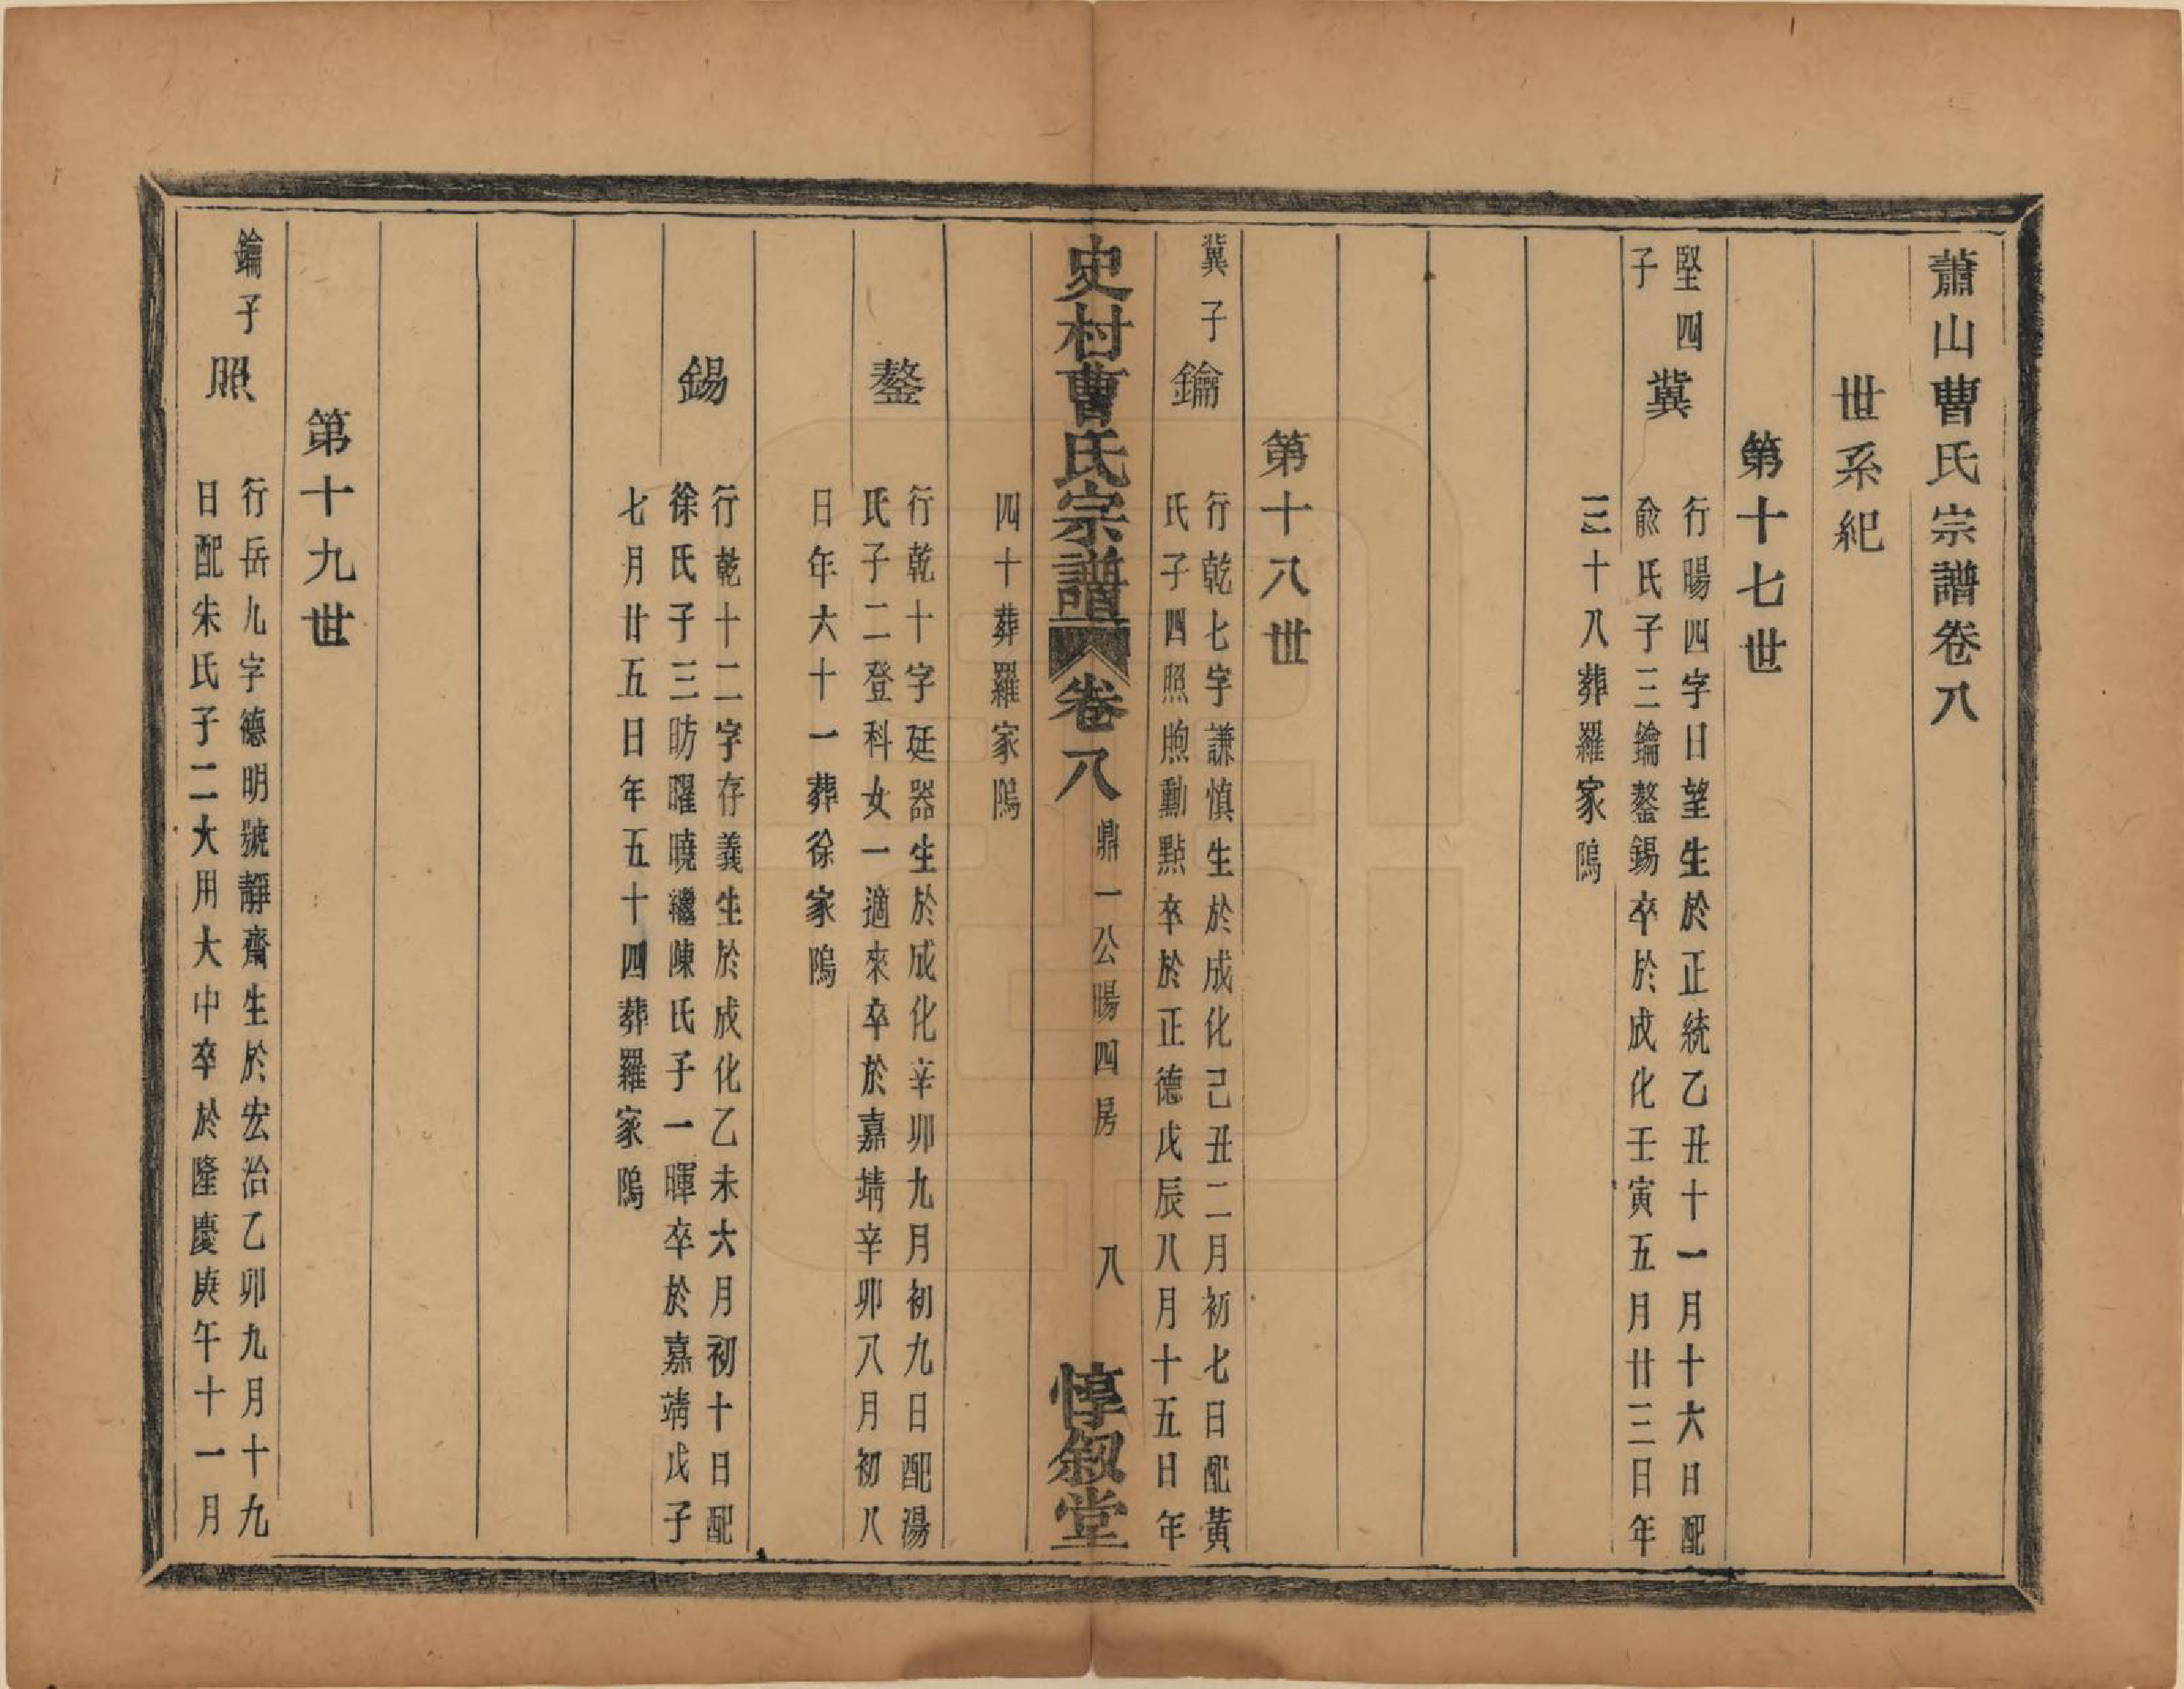 蕭山曹氏宗譜卷八
世系紀
第十七世
堅四
子
冀
行暘四字日望生於正統乙丑十一月十六日配
俞氏子三鑰鏊錫卒於成化壬寅五月廿三日年
三十八葬羅家隖
第十八世
冀子
鑰
行乾七字謙慎生於成化己丑二月初七日配黃
氏子四照煦勳點卒於正德戊辰八月十五日年
史村曹氏宗譜
卷八
鼎一公暘四房
八
惇叙堂
四十葬羅家隖
鏊
行乾十字廷器生於成化辛卯九月初九日配湯
氏子二登科女一適來卒於嘉靖辛卯八月初八
日年六十一葬徐家隖
錫
行乾十二字存義生於成化乙未六月初十日配
徐氏子三昉曜曉繼陳氏子一暉卒於嘉靖戊子
七月廿五日年五十四葬羅家隖
第十九世
鑰子
照
行岳九字德明號靜齋生於宏治乙卯九月十九
日配朱氏子二大用大中卒於隆慶庚午十一月